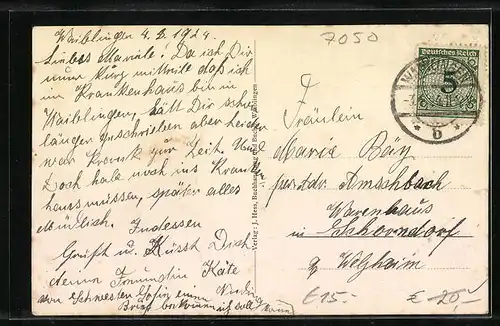 Waiblingen 4.2.1924
Liebes Mariele! Da ich Dir
nun kurz mitteile daß ich
im Krankenhaus bin in
Waiblingen, hätt Dir schon
länger geschrieben aber leider
war krank zur Zeit. Und
Doch habe noch ins Kranken
haus müssen, später alles
Mündlich. Indessen
Grüßt u. Küsst Dich
deine Freundin Käte
von Schwester Sofie einen
Brief bekommen
7050
Deutsches Reich
5
b
Fräulein
Marie Bäy
per. adr. Amschbach
Warenhaus
Schorndorf
Welzheim
Verlag: J. Hess, Buchhandlung, Waiblingen
€15.-
€ 20,-